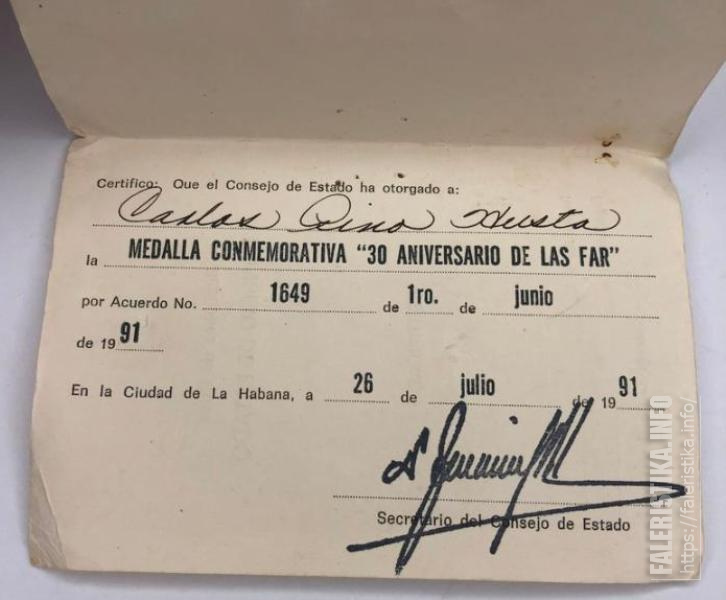 Certifico: Que el Consejo de Estado ha otorgado a:
Carlos Pino
la MEDALLA CONMEMORATIVA "30 ANIVERSARIO DE LAS FAR"
por Acuerdo No. 1649 de 1ro. de junio
de 1991
En la Ciudad de La Habana, a 26 de julio de 1991
Secretario del Consejo de Estado
FALERISTIKA.INFO
https://faleristika.info/